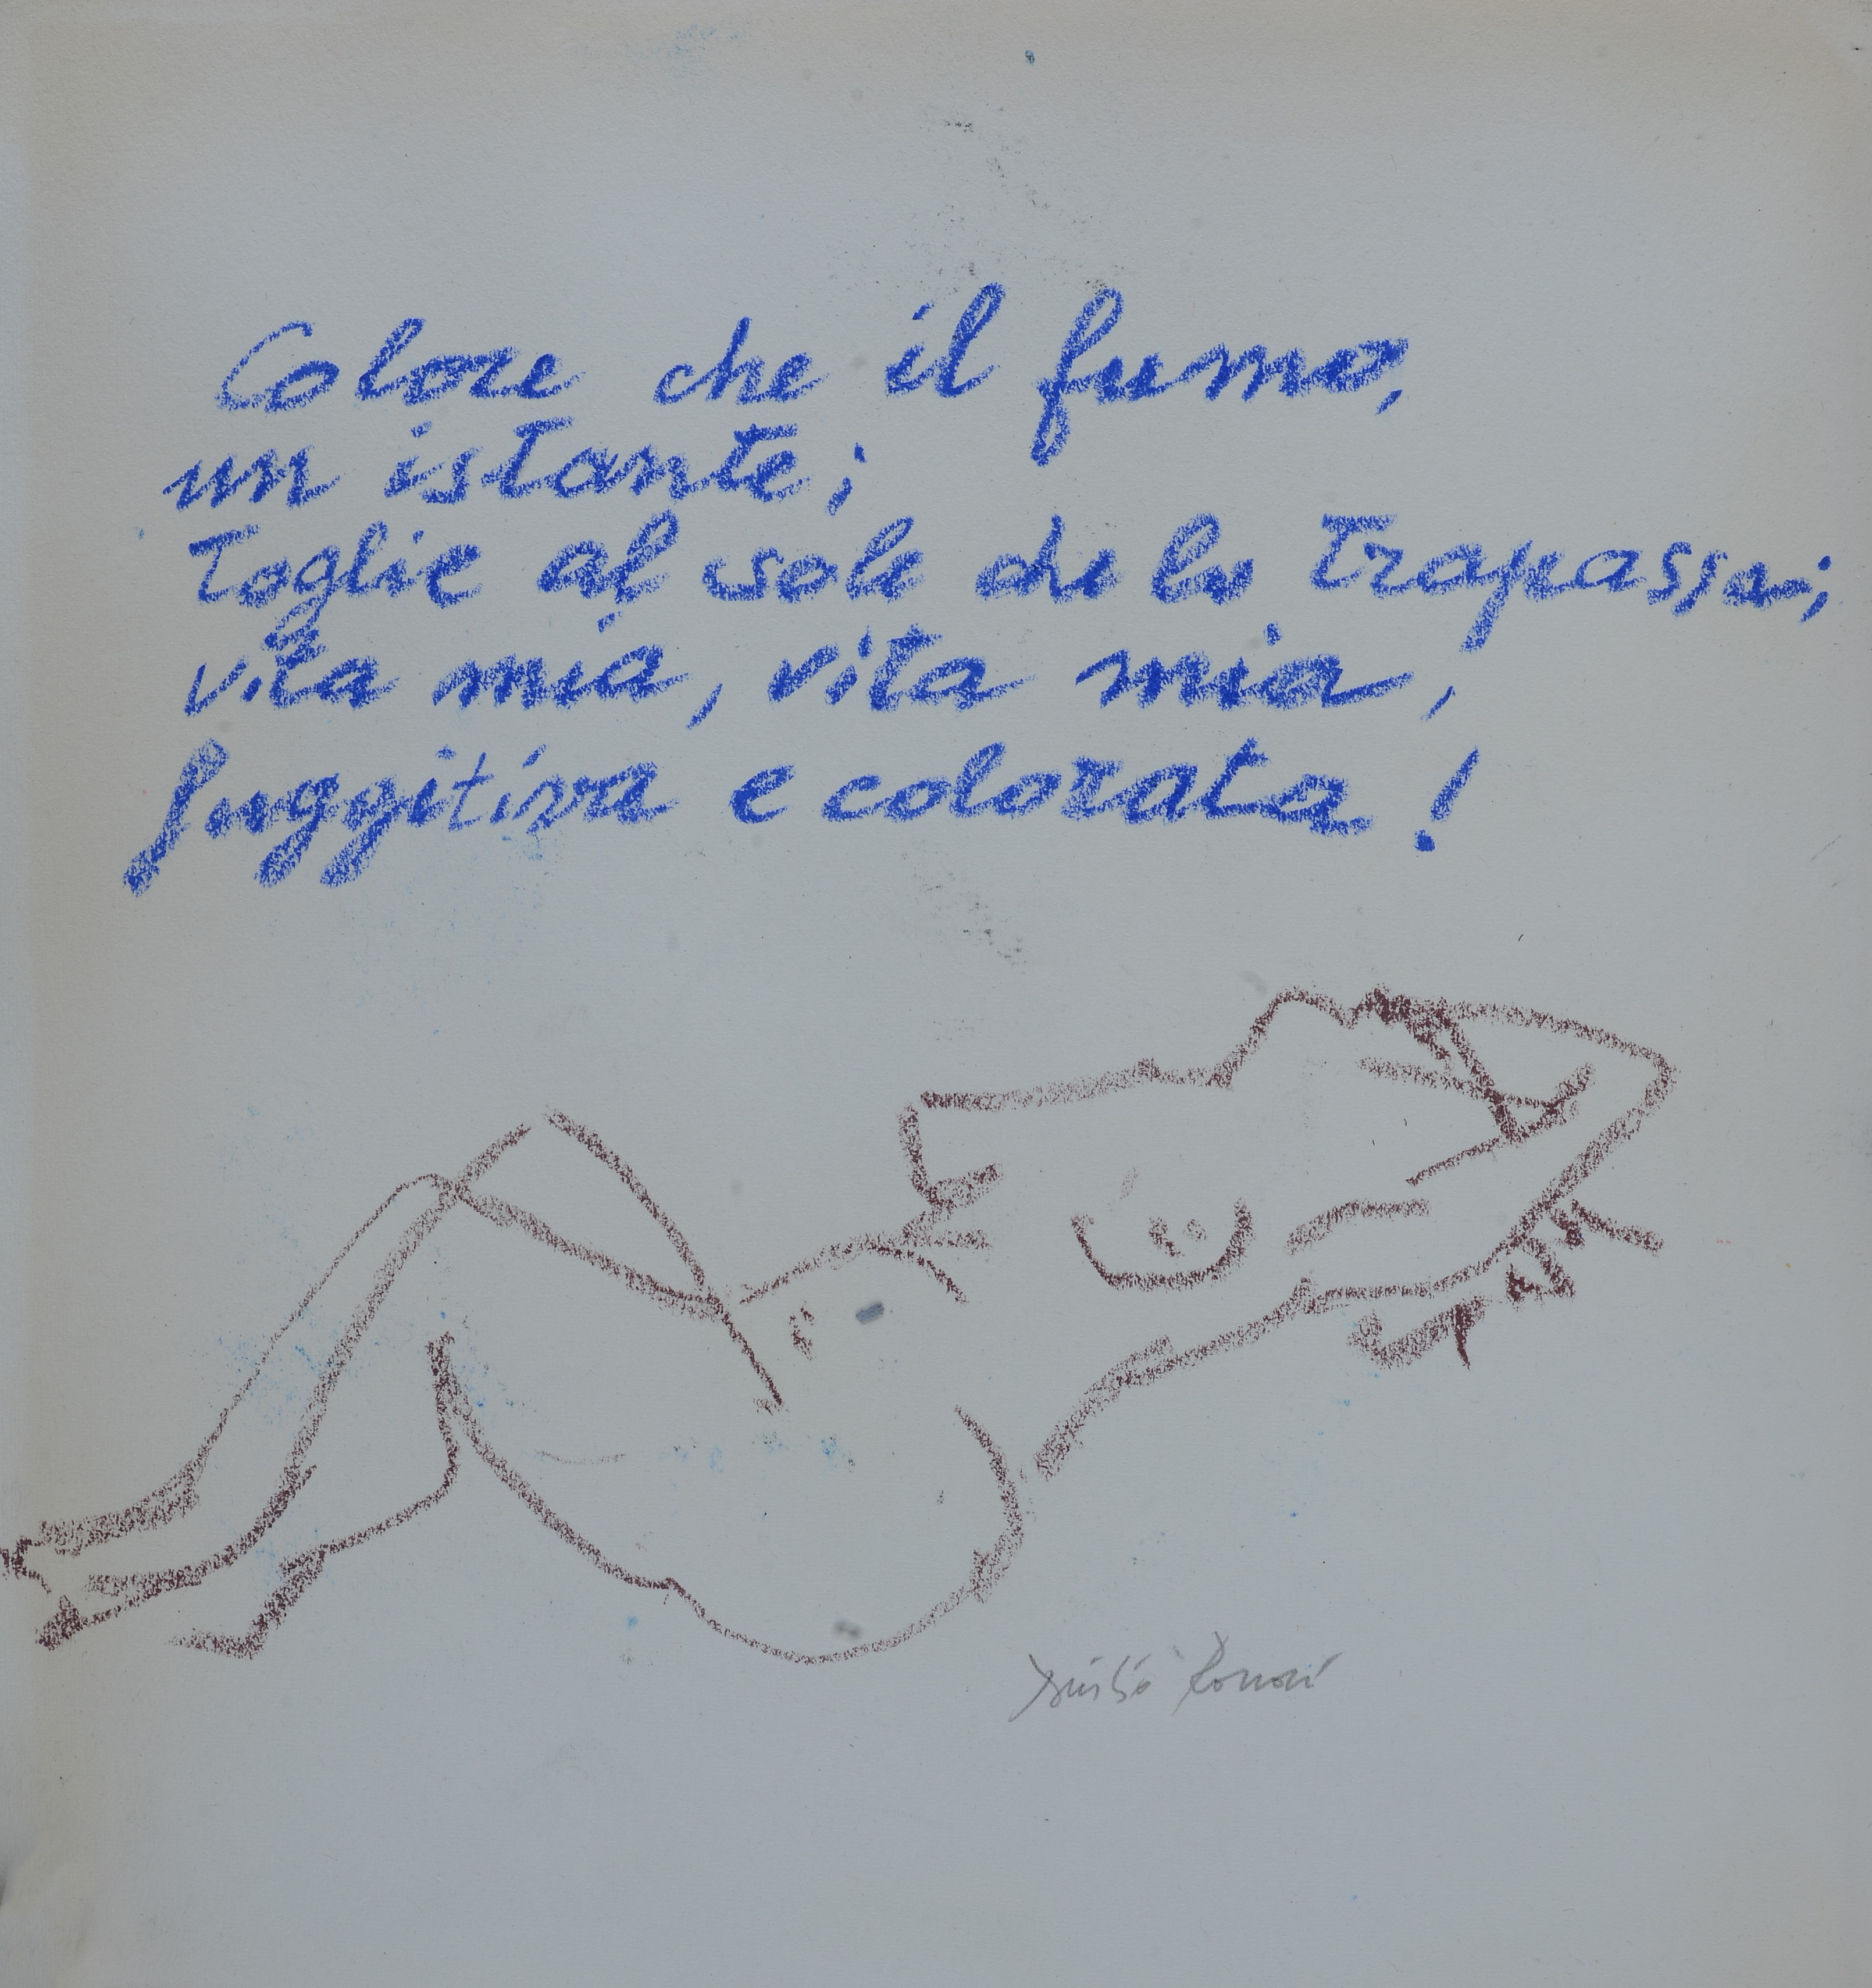 Colore che il fumo,
un istante;
Toglie al sole che lo Trapassa;
vita mia, vita mia,
fuggitiva e colorata!